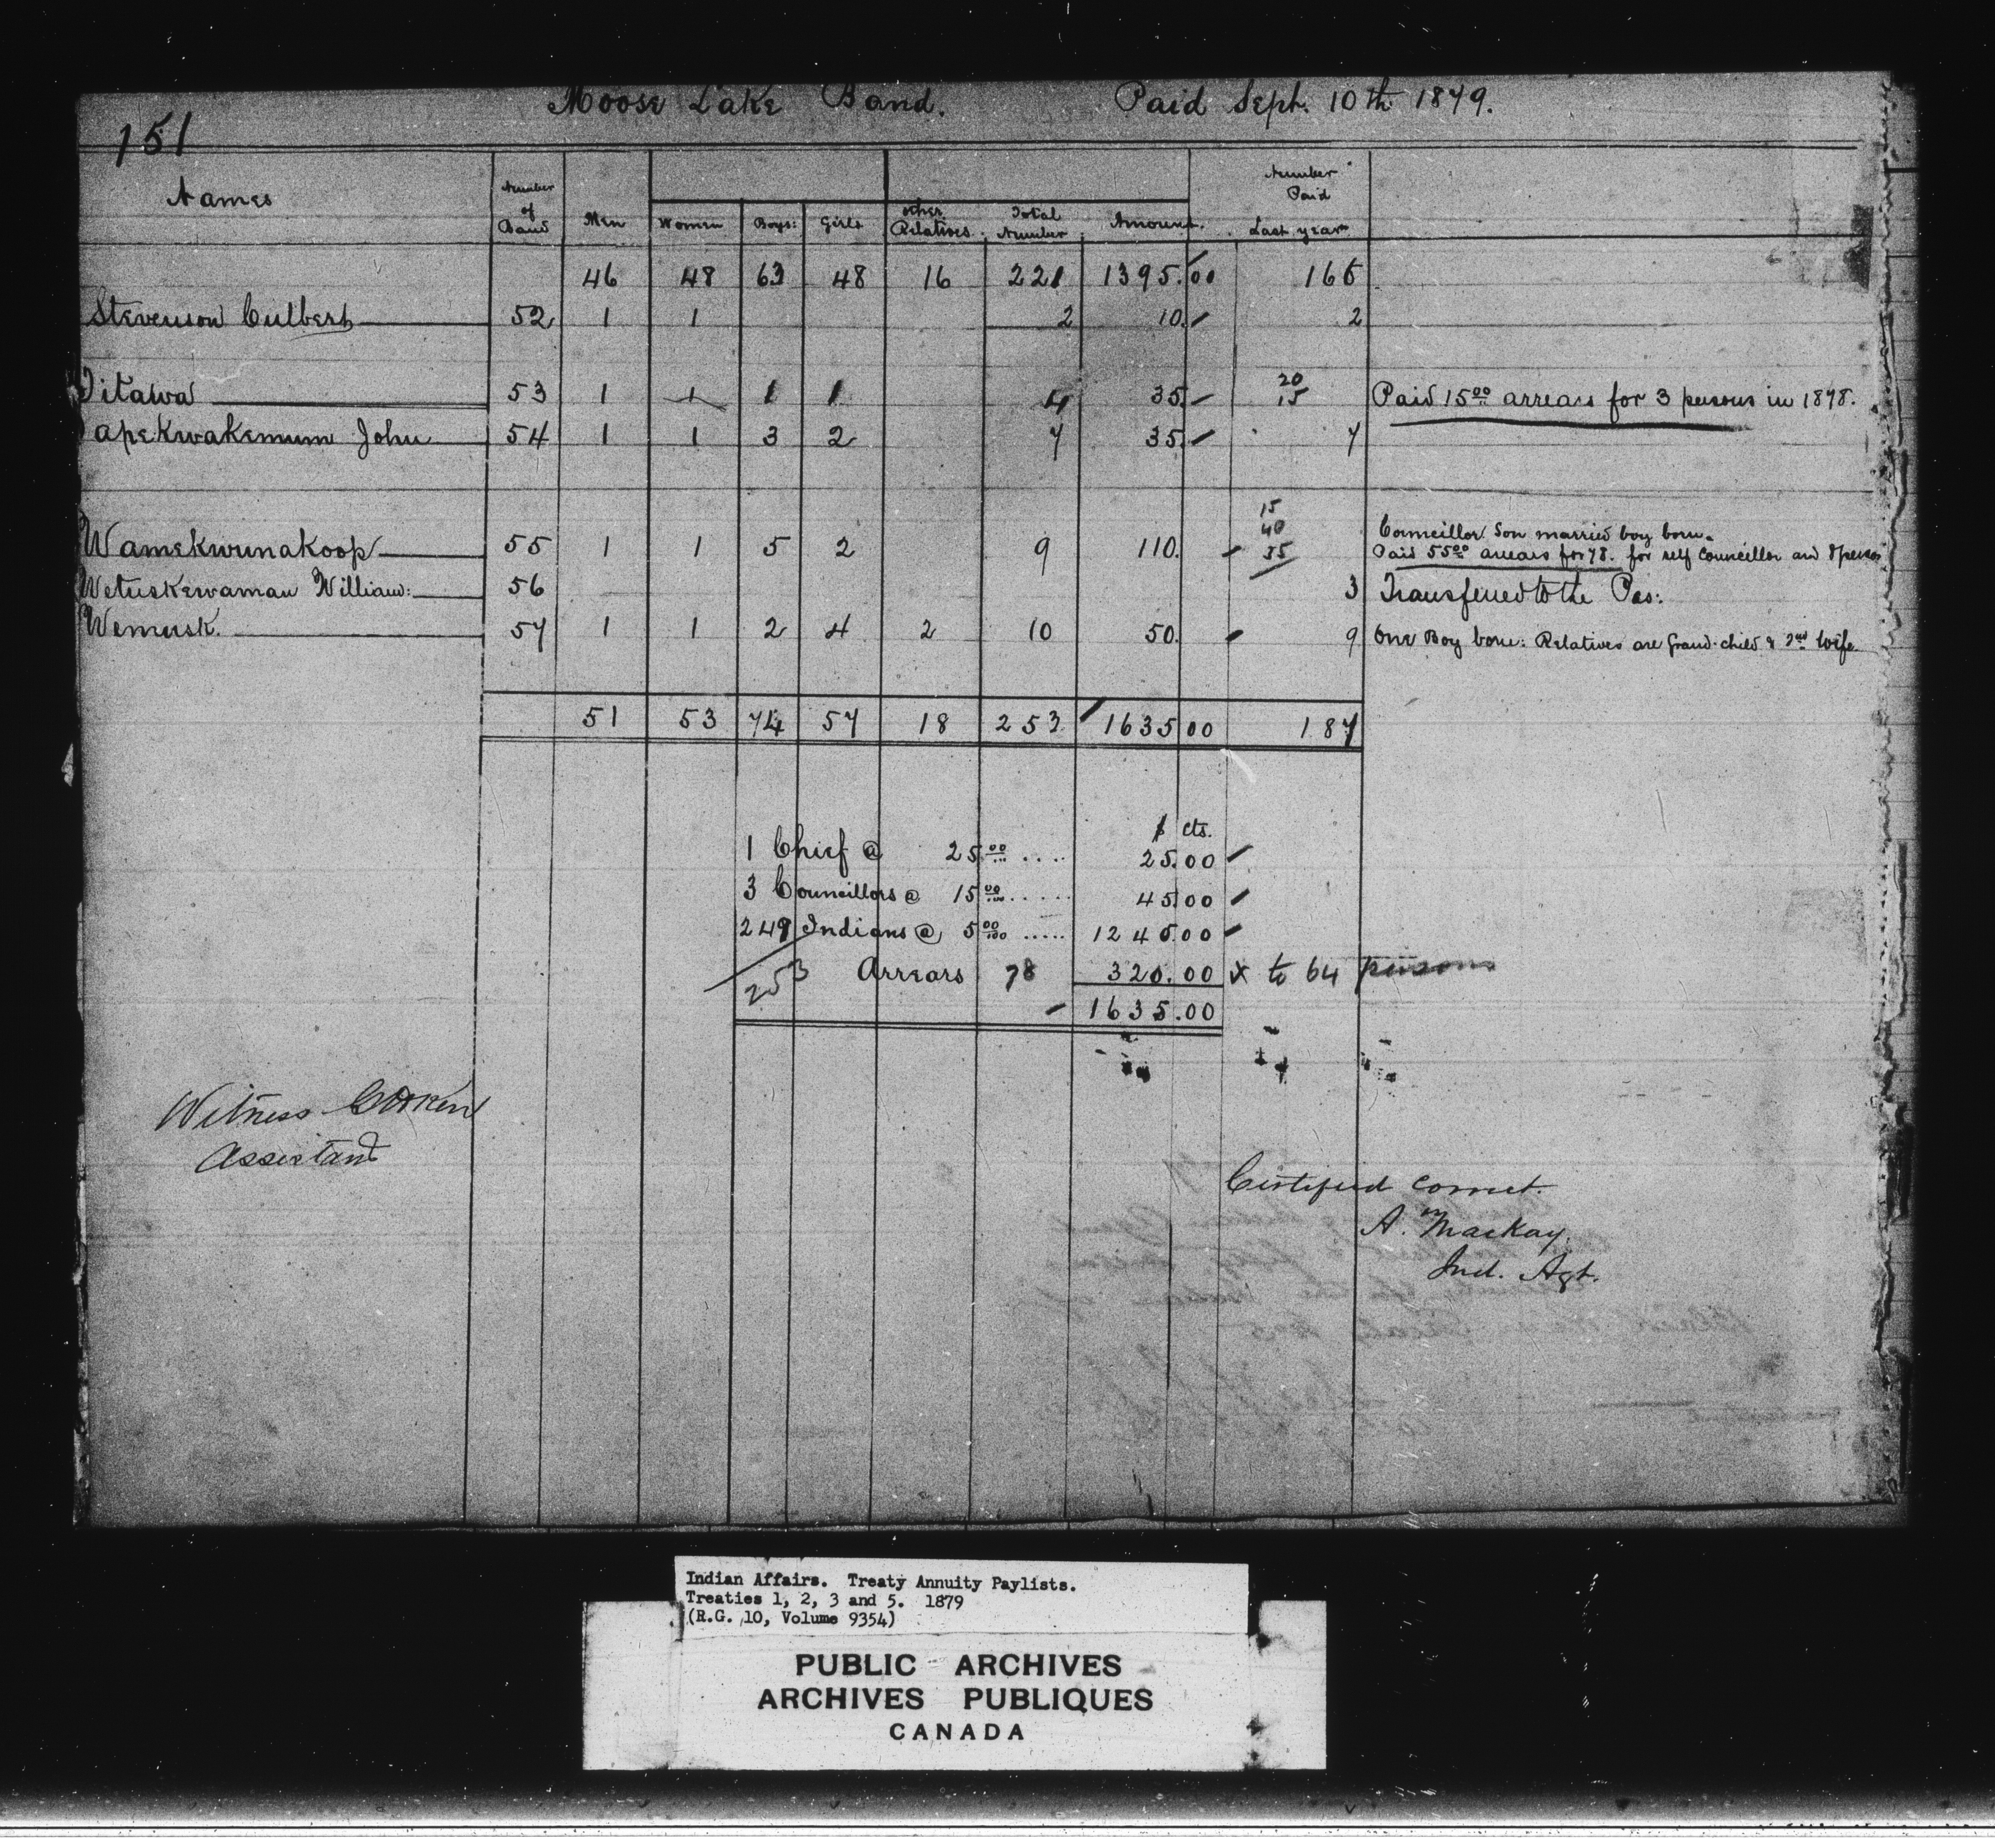 Moose Lake Band. Paid Sept. 10th 1879.
151
Names Number of Band Men Women Boys: Girls other Relatives. Total Number Amount. Number Paid Last year
46 48 63 48 16 221 1395.00 166
Stevenson Culbert 52 1 1 2 10. 2
Titawa 53 1 1 1 1 4 35. 20 15 Paid 15 00 arrears for 3 persons in 1878.
apekwakemum John 54 1 1 3 2 7 35. 7
15
40 Councillor Son married boy born.
Wamekwunakoop 55 1 1 5 2 9 110. 55 Paid 55 00 arrears for 78. for self Councillor and 8 persons
Wetuskewaman William: 56 3 Transferred to the Pas:
Wemusk. 57 1 1 2 4 2 10 50. 9 One Boy born: Relatives are Grand-child & 2nd Wife
51 53 74 57 18 253 1635 00 187
$ cts.
1 Chief @ 25 00 .... 25.00
3 Councillors @ 15 00 ..... 45 00
249 Indians @ 5 00/100 ..... 1245.00
253 Arrears 78 320.00 x to 64 persons
1635.00
Witness
Assistant
Certified correct.
A. MacKay.
Ind. Agt.
Indian Affairs. Treaty Annuity Paylists.
Treaties 1, 2, 3 and 5. 1879
(R.G. 10, Volume 9354)
PUBLIC ARCHIVES
ARCHIVES PUBLIQUES
CANADA